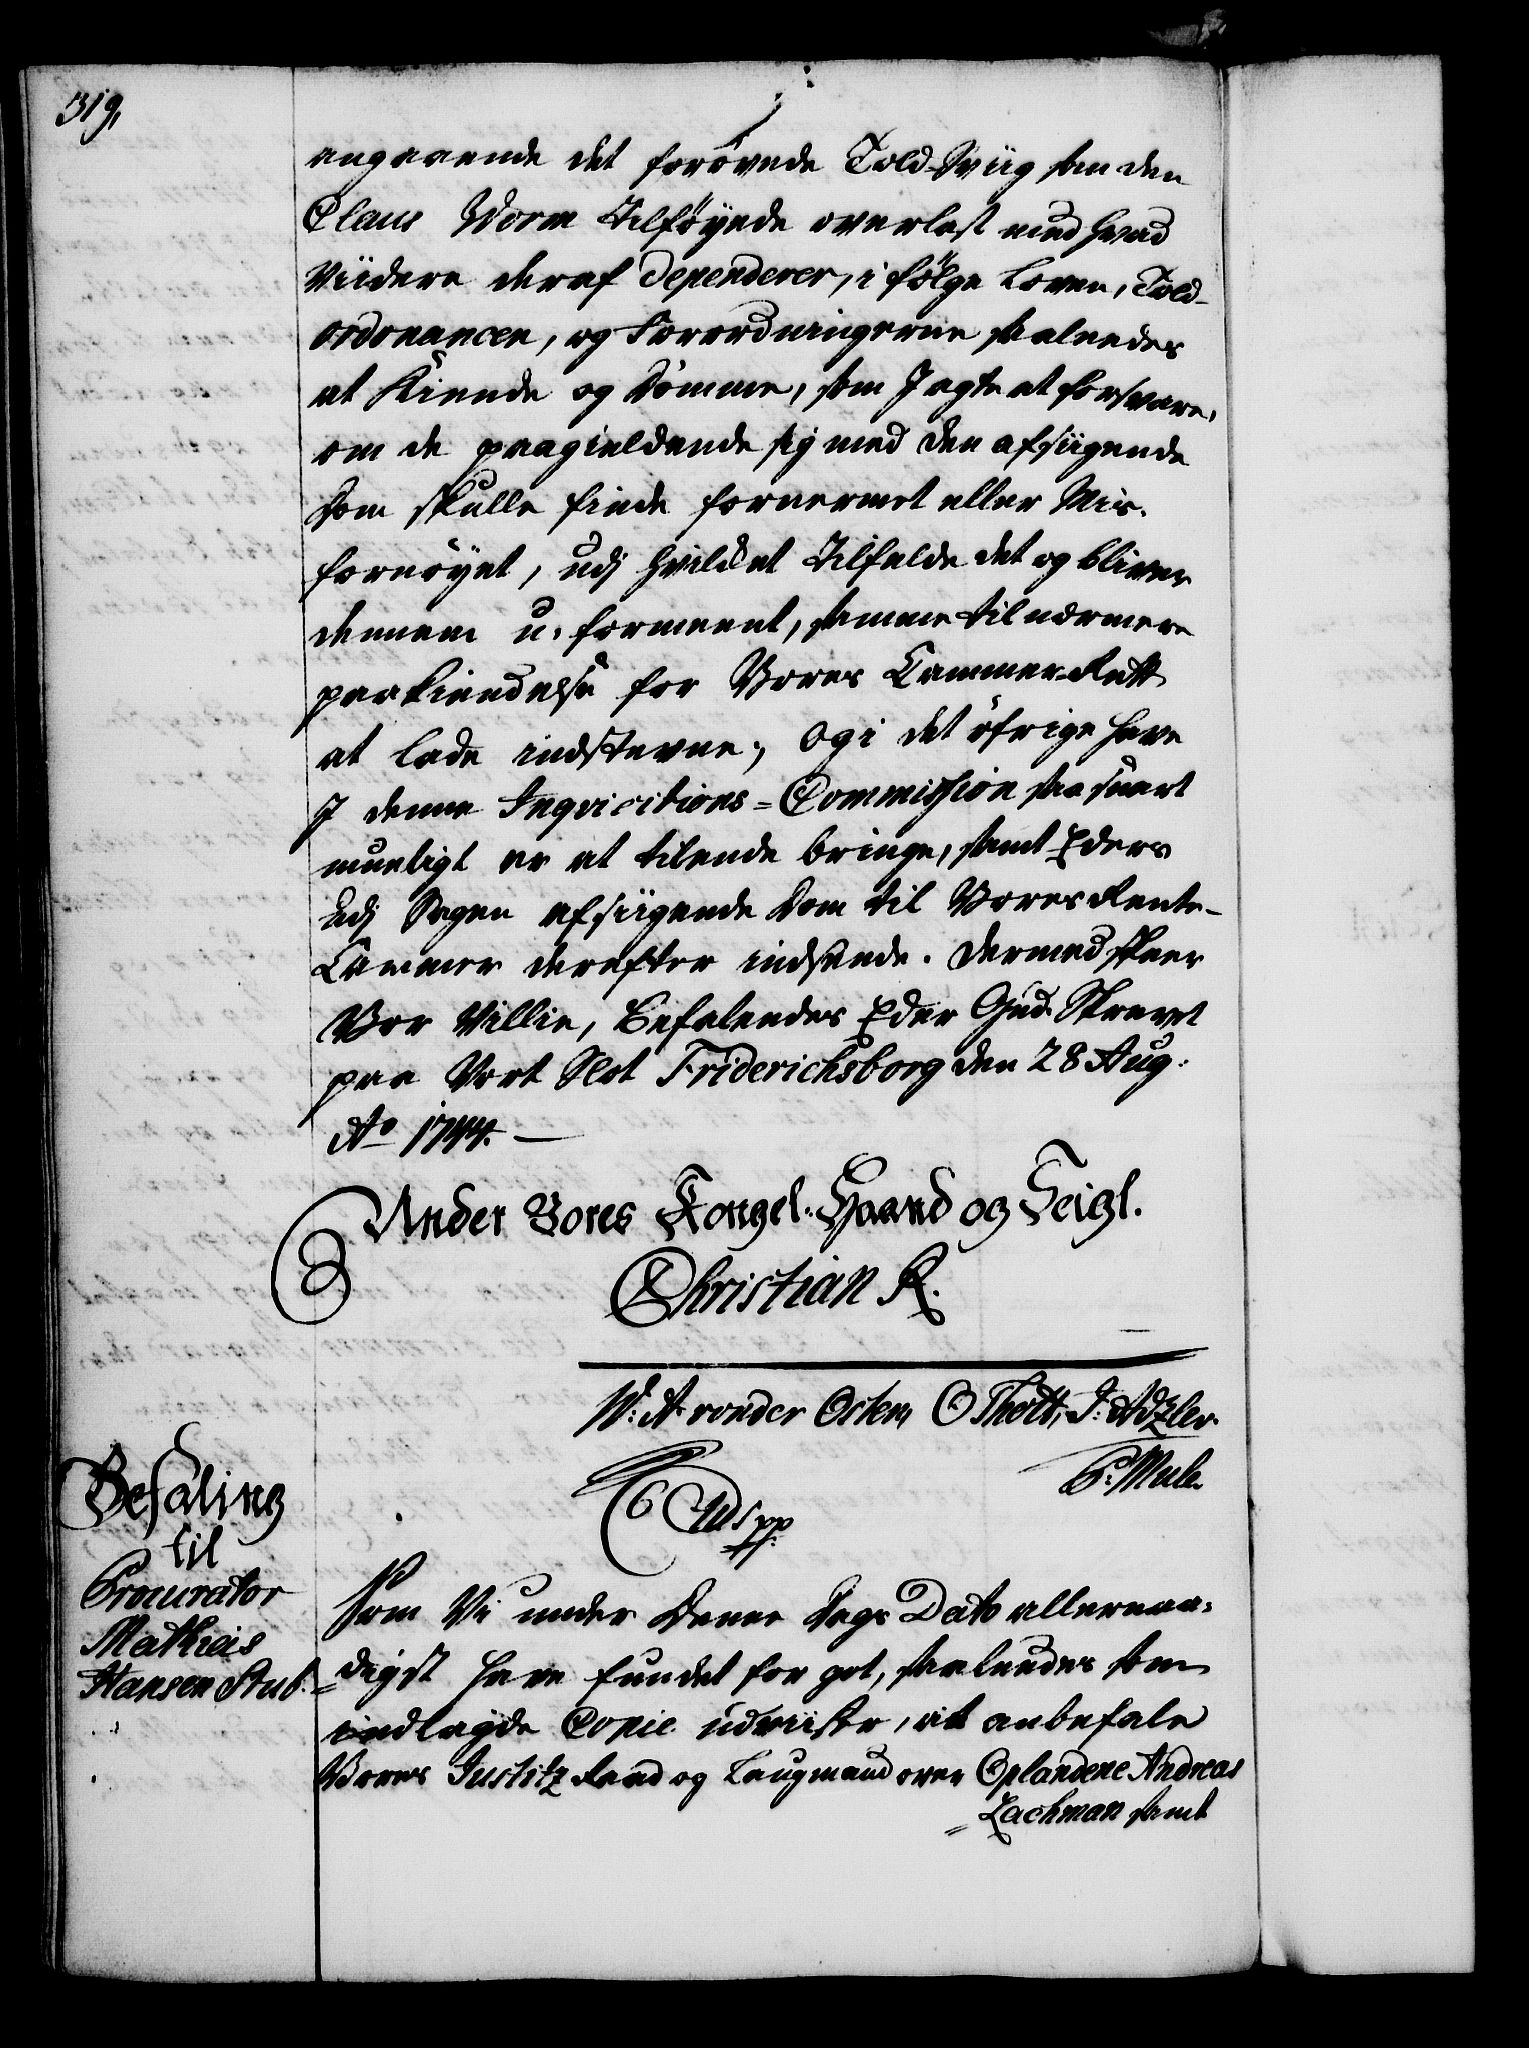 319,
angaaende det forövede Told-Sviig som den
Claus Worm tilföyede overlast med hvad
Viidere deraf dependerer, i fölge Loven, Told-
ordonancen, og Forordningerne saaledes
at Kiende og Dömme, som I agte at forsvare,
om de paagieldende sig med den afsiigende
Dom skulle finde fornermet eller Mis-
fornöyet, udj hvilket Tilfelde det og bliver
dennem u-formeent, samme til nærmere
paakiendelse for Vores Cammer-Rett
at lade indstevne; Og i det öfrige have
I denne Inqvicitions-Commission saa snart
mueligt er at tilende bringe, samt Eders
udj Sagen afsiigende Dom til Vores Rente-
Cammer derefter indsende. Dermed skeer
Vor Villie, Befalendes Eder Gud. Skrevet
paa Vort Slot Friderichsborg den 28 Aug:
Ao 1744.
Under Vores Kongel. Haand og Seigl.
Christian R.
W: A. von der Osten, O Thott, J: Adzler.
P: Mule
Befaling
til
Procurator
Mathias
Hansen Stub.
C 6tus pp
Som Vi under Denne Dags Dato allernaa-
digst have fundet for got, saaledes som
indlagde Copie udviiser, at anbefale
Vores Justitz Raad og Laugmand over Oplandene Andreas
Lachman samt